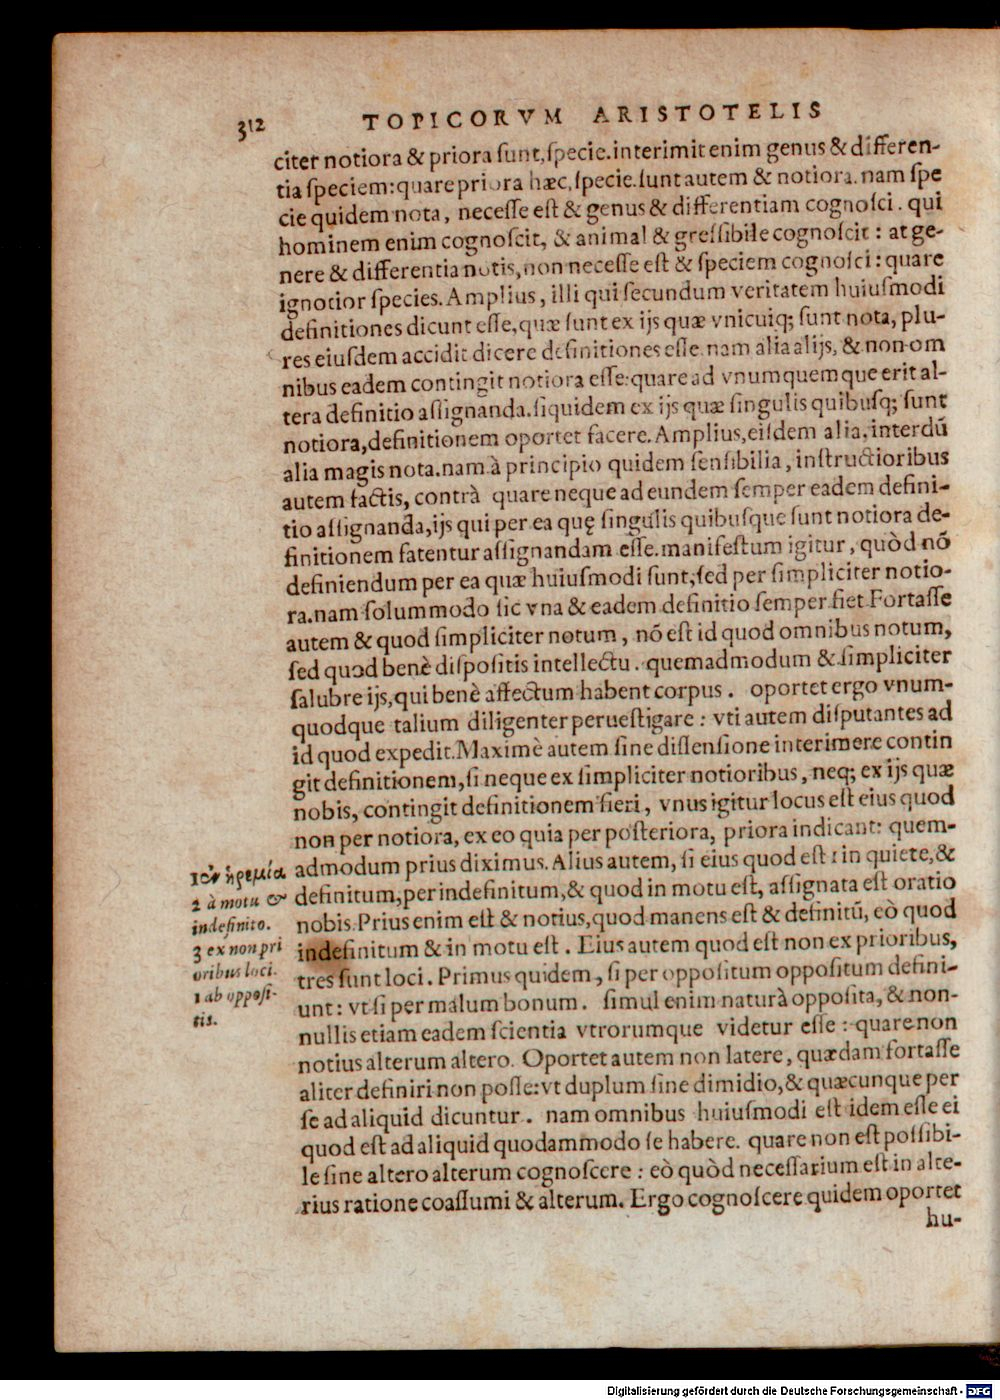 312 TOPICORVM ARISTOTELIS
citer notiora & priora ſunt, ſpecie. interimit enim genus & differen-
tia ſpeciem: quare priora hæc, ſpecie. ſunt autem & notiora. nam ſpe
cie quidem nota, neceſſe eſt & genus & differentiam cognoſci. qui
hominem enim cognoſcit, & animal & greſſibile cognoſcit: at ge-
nere & differentia notis, non neceſſe eſt & ſpeciem cognoſci: quare
ignotior ſpecies. Amplius, illi qui ſecundum veritatem huiuſmodi
definitiones dicunt eſſe, quæ ſunt ex ijs quæ vnicuiq; ſunt nota, plu-
res eiuſdem accidit dicere definitiones eſſe. nam alia alijs, & non om
nibus eadem contingit notiora eſſe: quare ad vnumquemque erit al-
tera definitio aſſignanda. ſiquidem ex ijs quæ ſingulis quibuſq; ſunt
notiora, definitionem oportet facere. Amplius, eiſdem alia, interdũ
alia magis nota. nam à principio quidem ſenſibilia, inſtructioribus
autem factis, contrà quare neque ad eundem ſemper eadem defini-
tio aſſignanda, ijs qui per ea quę ſingulis quibuſque ſunt notiora de-
finitionem fatentur aſſignandam eſſe. manifeſtum igitur, quòd nõ
definiendum per ea quæ huiuſmodi ſunt, ſed per ſimpliciter notio-
ra. nam ſolummodo ſic vna & eadem definitio ſemper fiet. Fortaſſe
autem & quod ſimpliciter notum, nõ eſt id quod omnibus notum,
ſed quod benè diſpoſitis intellectu. quemadmodum & ſimpliciter
ſalubre ijs, qui benè affectum habent corpus. oportet ergo vnum-
quodque talium diligenter perueſtigare: vti autem diſputantes ad
id quod expedit. Maximè autem ſine diſſenſione interimere contin
git definitionem, ſi neque ex ſimpliciter notioribus, neq; ex ijs quæ
nobis, contingit definitionem fieri, vnus igitur locus eſt eius quod
non per notiora, ex eo quia per poſteriora, priora indicant: quem-
admodum prius diximus. Alius autem, ſi eius quod eſt in quiete, &
definitum, per indefinitum, & quod in motu eſt, aſſignata eſt oratio
nobis. Prius enim eſt & notius, quod manens eſt & definitũ, eò quod
indefinitum & in motu eſt. Eius autem quod eſt non ex prioribus,
tres ſunt loci. Primus quidem, ſi per oppoſitum oppoſitum defini-
unt: vt ſi per malum bonum. ſimul enim naturà oppoſita, & non-
nullis etiam eadem ſcientia vtrorumque videtur eſſe: quare non
notius alterum altero. Oportet autem non latere, quædam fortaſſe
aliter definiri non poſſe: vt duplum ſine dimidio, & quæcunque per
ſe ad aliquid dicuntur. nam omnibus huiuſmodi eſt idem eſſe ei
quod eſt ad aliquid quodammodo ſe habere. quare non eſt poſſibi-
le ſine altero alterum cognoſcere: eò quòd neceſſarium eſt in alte-
rius ratione coaſſumi & alterum. Ergo cognoſcere quidem oportet
hu-
1 ἐν ἠρεμία
2 à motu &
indefinito.
3 ex non pri
oribus loci.
1 ab oppoſi-
tis.
Digitalisierung gefördert durch die Deutsche Forschungsgemeinschaft - DFG